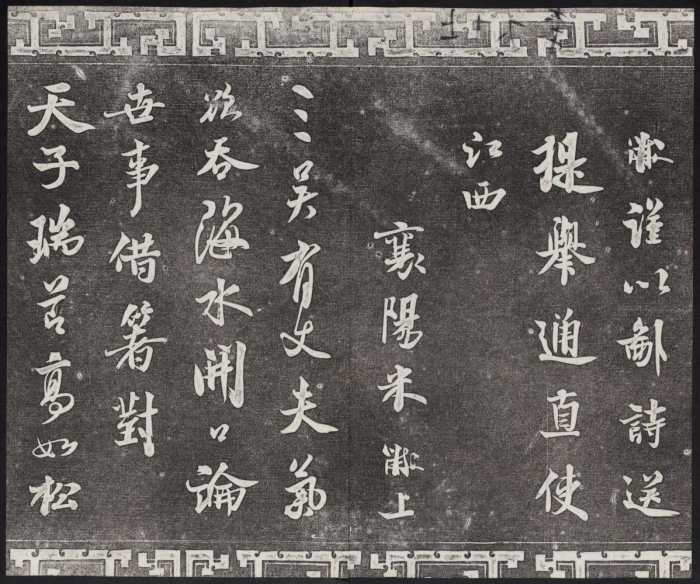 黻謹以鄙詩送
提舉通直使
江西
襄陽米黻上
三吳有丈夫氣
欲吞海水開口論
世事借箸對
天子瑞高如松